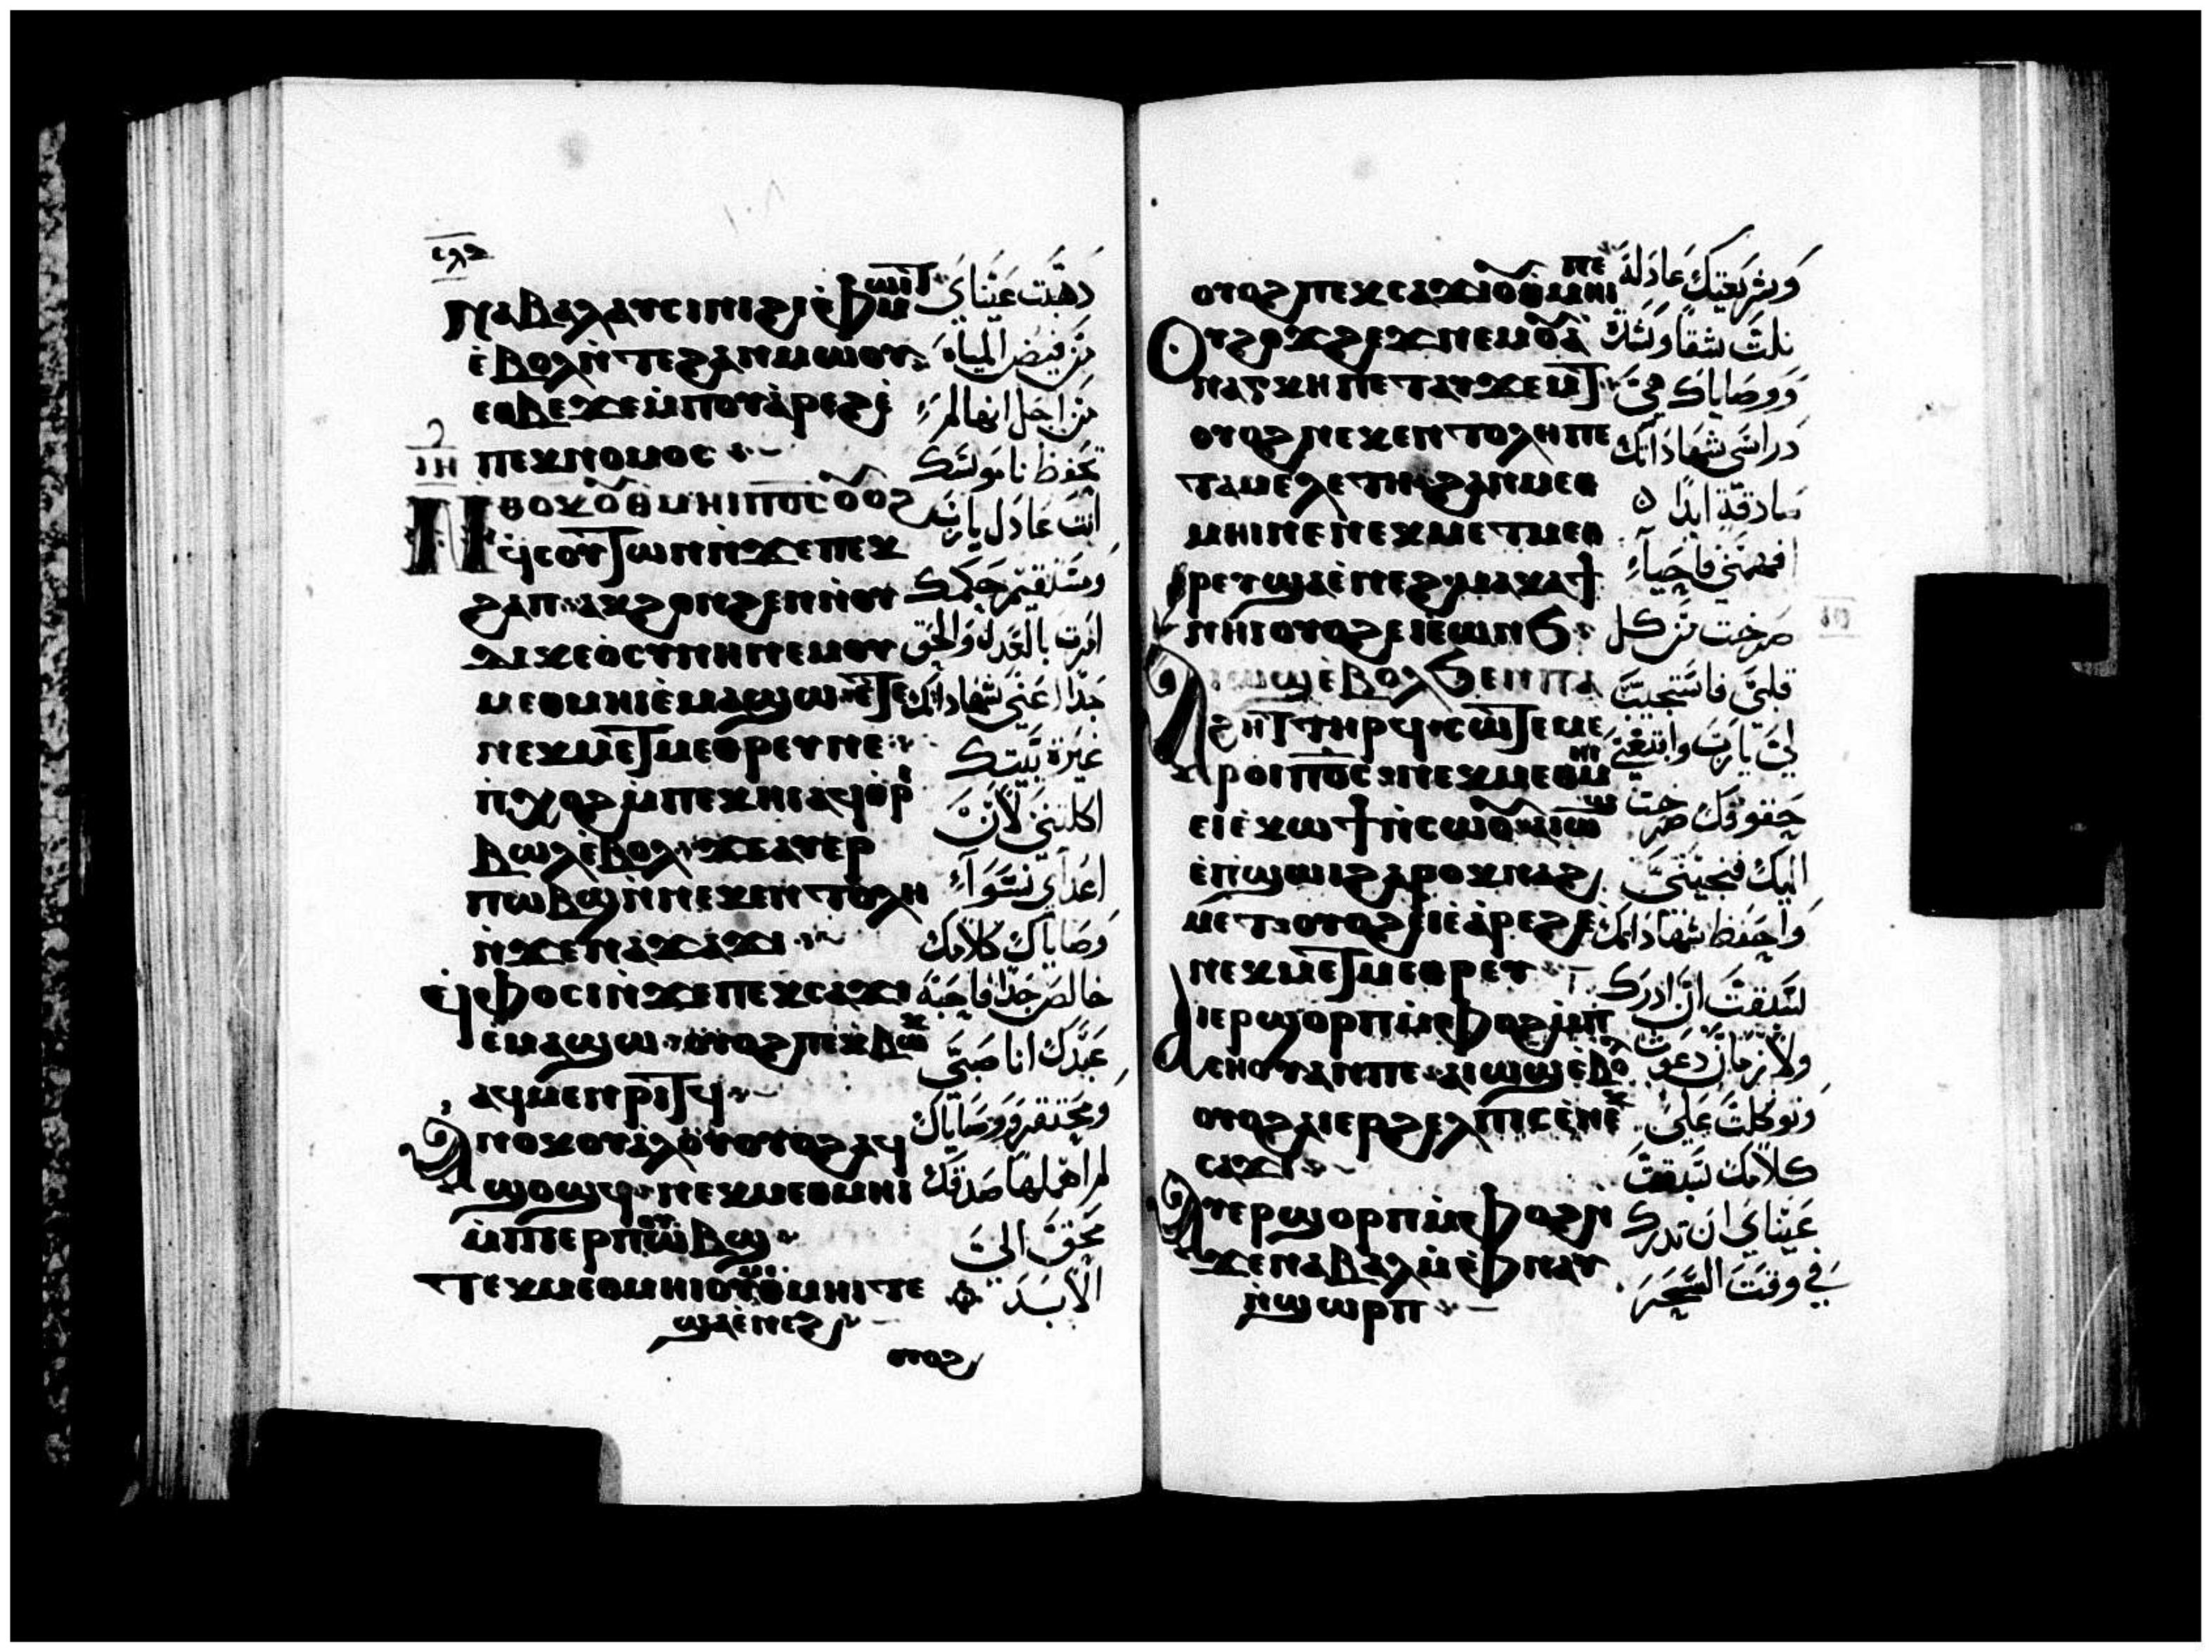 ⲛⲁⲃⲁⲗ ⲁⲩⲥⲓⲛⲓ ϩⲓ ⲫⲙⲱⲓⲧ
ⲉⲃⲟⲗ ⲛⲧⲉ ϩⲁⲛⲙⲱⲟⲩ
ⲉⲑⲃⲉ ϫⲉ ⲙⲡⲟⲩⲁⲣⲉϩ ⲉ
ⲡⲉⲕⲛⲟⲙⲟⲥ
ⲓⲏ
ⲛⲑⲟⲕ ⲟⲩⲑⲙⲏⲓ ⲡⲟⲥ ⲟⲩⲟϩ
ϥⲥⲟⲩⲧⲱⲛ ⲛϫⲉ ⲡⲉⲕ
ϩⲁⲡ ⲁⲕϩⲟⲛϩⲉⲛ ⲛⲟⲩ
ⲇⲓⲕⲉⲟⲥⲩⲛⲏ ⲛⲉⲙ ⲟⲩ
ⲙⲉⲑⲙⲏⲓ ⲉⲙⲁϣⲱ ⲉⲧⲉ
ⲛⲉⲕⲙⲉⲧⲙⲉⲑⲣⲉⲩ ⲛⲉ
ⲡⲭⲟϩ ⲙⲡⲉⲕⲏⲓ ⲁϥⲑⲣⲓ
ⲃⲱⲗ ⲉⲃⲟⲗ ϫⲉ ⲁⲩⲉⲣ
ⲡⲱⲃϣ ⲛⲛⲉⲕⲉⲛⲧⲟⲗⲏ
ⲛϫⲉ ⲛⲁϫⲁϫⲓ
ϥⲫⲟⲥⲓ ⲛϫⲉ ⲡⲉⲕⲥⲁϫⲓ
ⲉⲙⲁϣⲱ ⲟⲩⲟϩ ⲡⲉⲕⲃⲱⲕ
ⲁϥⲙⲉⲛⲣⲓⲧϥ
ⲁⲛⲟⲕ ⲟⲩⲁⲗⲟⲩ ⲟⲩⲟϩ ⲁϥ
ϣⲟϣϥ ⲛⲉⲕⲙⲉⲑⲙⲏⲓ
ⲙⲡⲉⲣⲡⲟⲩⲱⲃϣ
ⲧⲉⲕⲙⲉⲑⲙⲏⲓ ⲟⲩⲙⲉⲑⲙⲏⲓ ⲧⲉ
ϣⲁ ⲉⲛⲉϩ
ⲟⲩⲟϩ
ذهبت عيناي
من فيض المياه
من اجل انها لم
تحفظ ناموسك
انت عادل يارب
ومستقيم حكمك
امرت بالعدل والحق
جدا اعني شهاداتك
غيرة بيتك
اكلتني لان
اعداي نسوا
وصاياك كلامك
خالص جدا فاحبه
عبدك انا صبي
ومحتقر ووصاياك
لم اهملها صدقك
محق الى
الابد
ⲟⲩⲟϩ ⲡⲉⲕⲥⲁϫⲓ ⲟⲩⲑⲙⲏⲓ ⲡⲉ
ⲟⲩϩⲟϫϩⲉϫ ⲛⲉⲙ ⲟⲩⲁ
ⲛⲁⲅⲕⲏ ⲡⲉⲧⲁⲩϫⲉⲙⲧ
ⲟⲩⲟϩ ⲛⲉⲕⲉⲛⲧⲟⲗⲏ ⲡⲉ
ⲧⲁⲙⲉⲗⲉⲧⲏ ϩⲁⲛⲙⲉⲑ
ⲙⲏⲓ ⲛⲉ ⲛⲉⲕⲙⲉⲧⲙⲉⲑ
ⲣⲉⲩ ϣⲁ ⲉⲛⲉϩ ⲙⲁⲕⲁϯ
ⲛⲏⲓ ⲟⲩⲟϩ ⲉⲓⲉⲱⲛϧ
ⲁⲓⲱϣ ⲉⲃⲟⲗ ϧⲉⲛ ⲡⲁ
ϩⲏⲧ ⲧⲏⲣϥ ⲥⲱⲧⲉⲙ ⲉ
ⲣⲟⲓ ⲡⲟⲥ ⲛⲉⲕⲙⲉⲑⲙⲏⲓ
ⲉⲓⲉⲕⲱϯ ⲛⲥⲱⲟⲩ ⲁⲓⲱϣ
ⲉⲡϣⲱⲓ ϩⲁⲣⲟⲕ ⲛⲁϩ
ⲙⲉⲧ ⲟⲩⲟϩ ⲉⲓⲉⲁⲣⲉϩ ⲉ
ⲛⲉⲕⲙⲉⲧⲙⲉⲑⲣⲉⲩ
ⲁⲓⲉⲣϣⲟⲣⲡ ⲙⲫⲟϩ ⲙⲡ
ⲥⲏⲟⲩ ⲁⲛ ⲡⲉ ⲁⲓⲱϣ ⲉⲃⲟⲗ
ⲟⲩⲟϩ ⲁⲓⲉⲣϩⲉⲗⲡⲓⲥ ⲉⲛⲉⲕ
ⲥⲁϫⲓ
ⲁⲩⲉⲣϣⲟⲣⲡ ⲙⲫⲟϩ ⲛ
ϫⲉ ⲛⲁⲃⲁⲗ ⲙⲫⲛⲁⲩ
ⲛϣⲱⲣⲡ
وشريعتك عادلة
نلت شقا وشدة
ووصاياك هي
دراستي شهاداتك
صادقة ابدا
افهمني فاحيا
صرخت من كل
قلبي فاستجيب
لي يارب وابتغي
حقوقك صرخت
اليك فنجيني
واحفظ شهاداتك
لسبقت ان ادرك
ولازمان دعوت
وتوكلت على
كلامك سبقت
عيناي ان تدرك
في وقت السحر